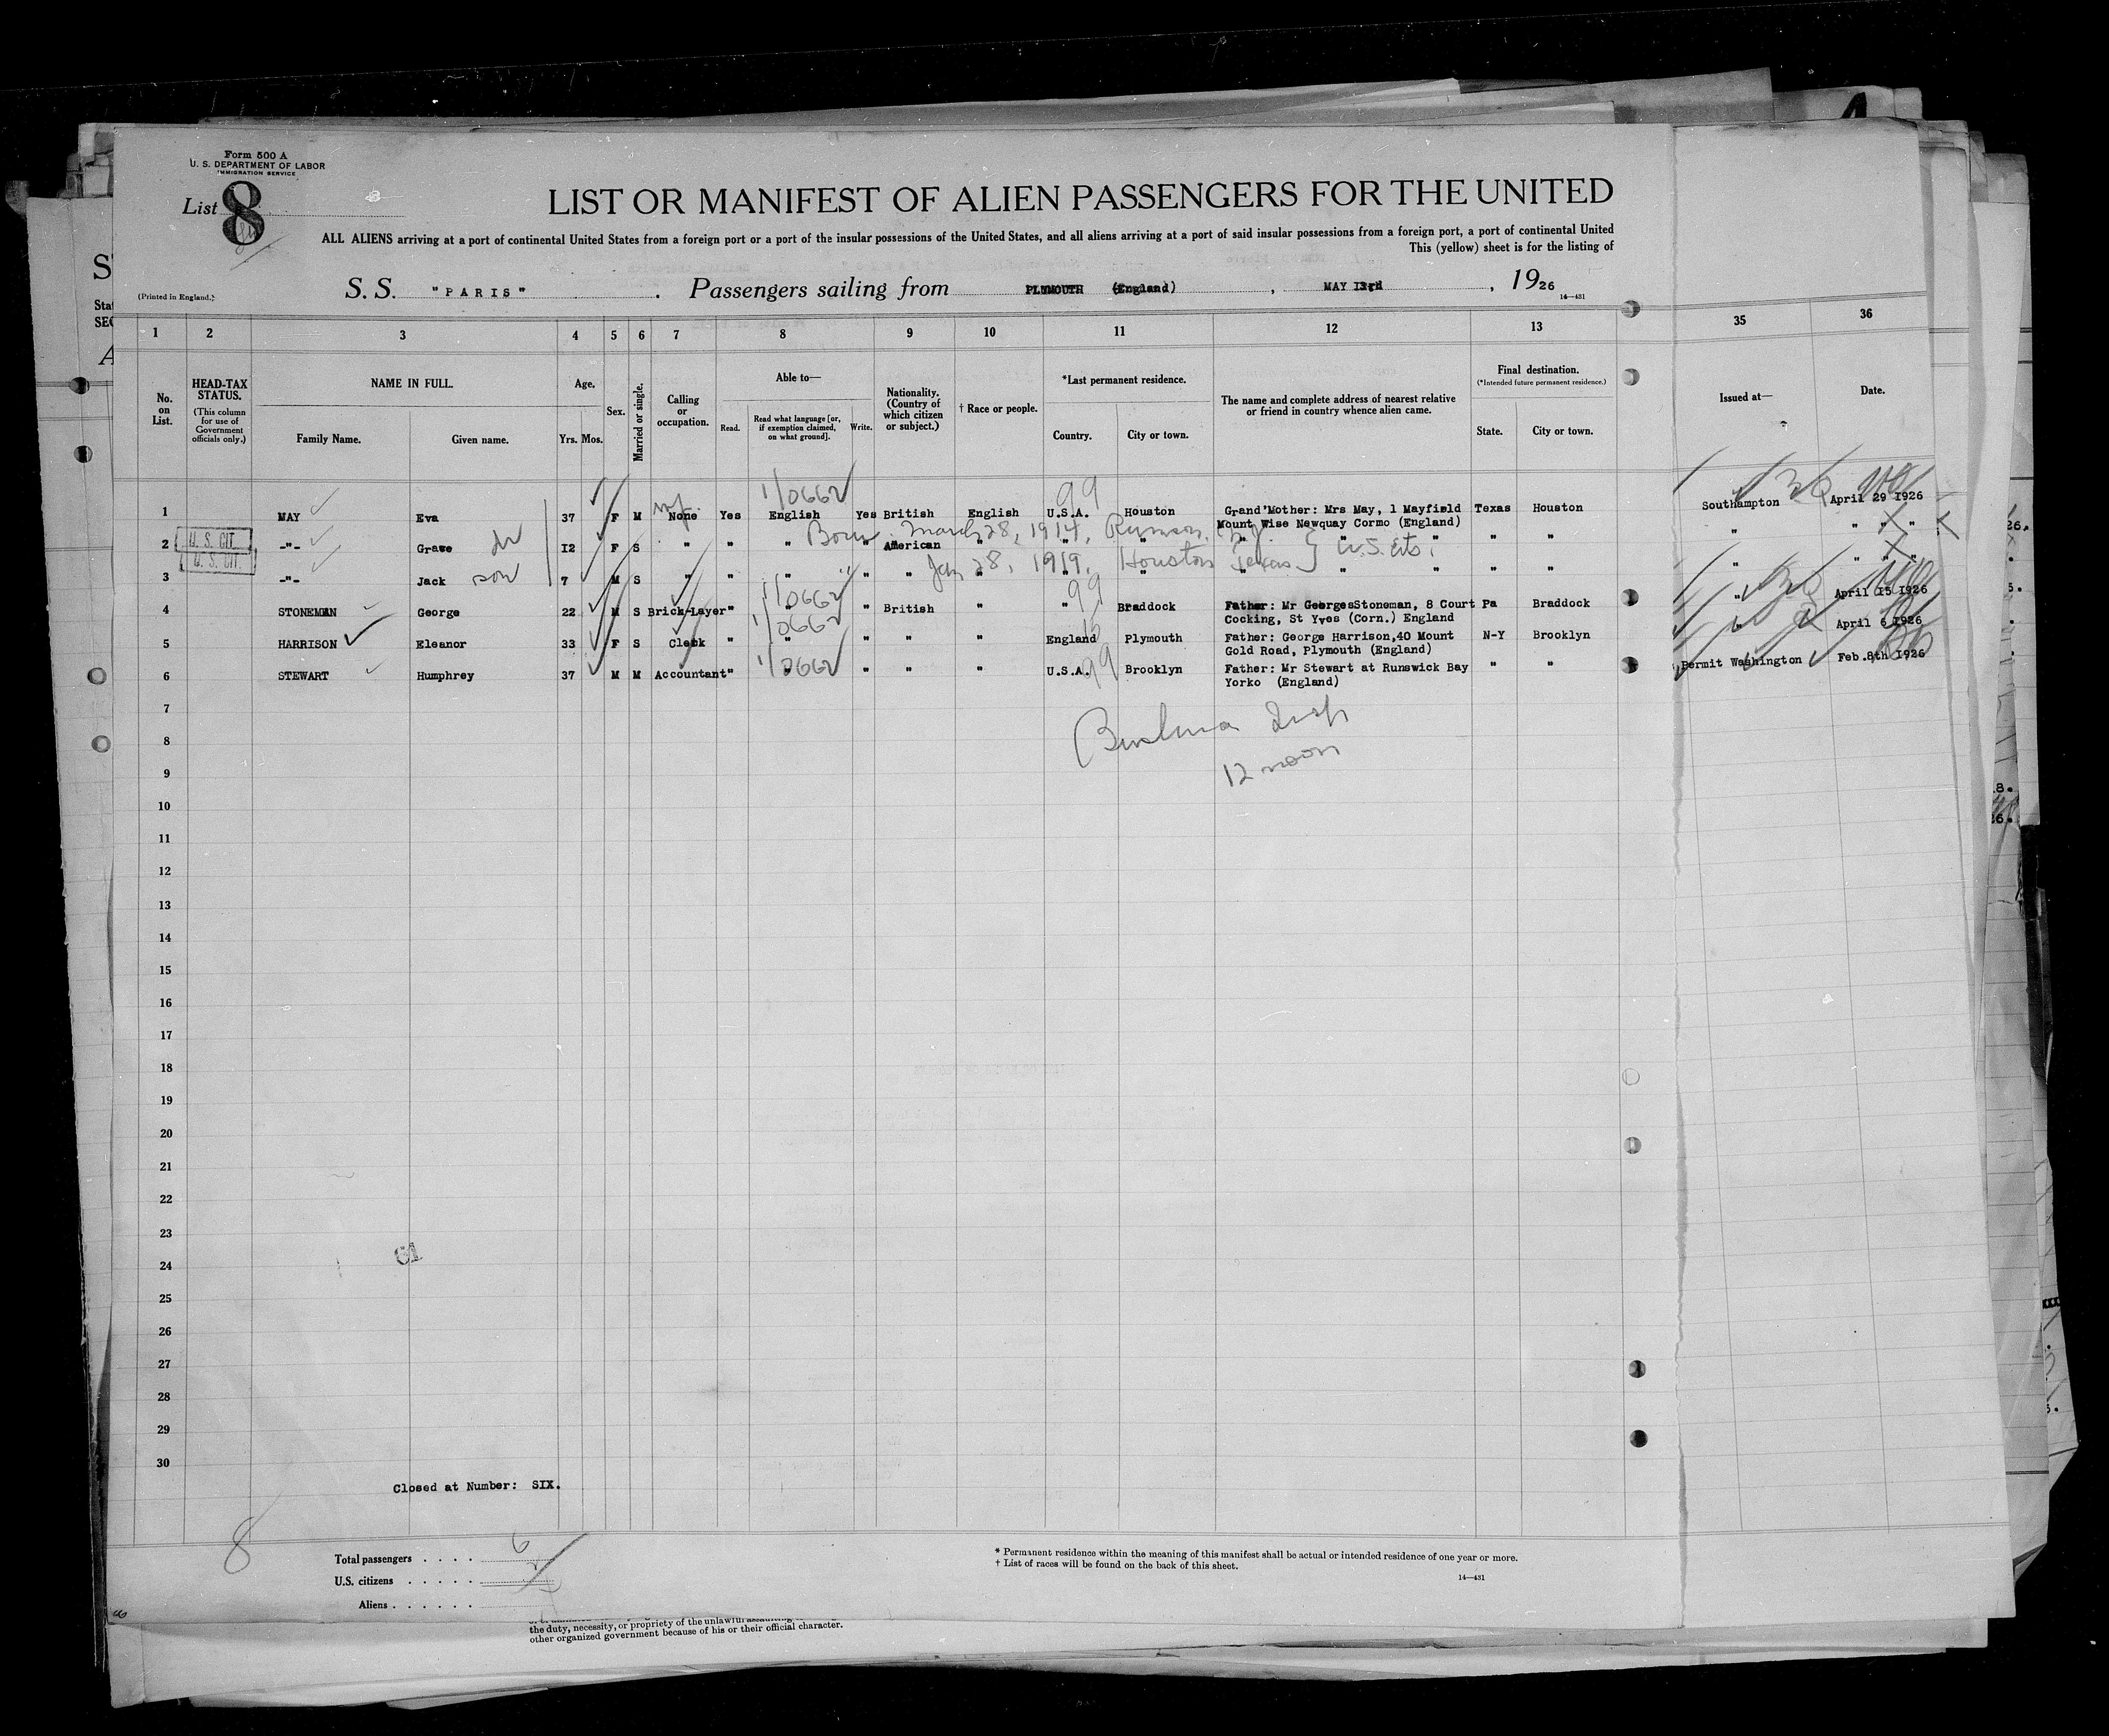 Form 500 A
U. S. DEPARTMENT OF LABOR
IMMIGRATION SERVICE
List 8
LIST OR MANIFEST OF ALIEN PASSENGERS FOR THE UNITED
ALL ALIENS arriving at a port of continental United States from a foreign port or a port of the insular possessions of the United States, and all aliens arriving at a port of said insular possessions from a foreign port, a port of continental United
This (yellow) sheet is for the listing of
(Printed in England.)
S. S. "PARIS" . Passengers sailing from PLYMOUTH (England) , MAY , 1926
14—431
1 2 3 4 5 6 7 8 9 10 11 12 13 35 36
No. on List.
HEAD-TAX STATUS.
(This column for use of Government officials only.)
NAME IN FULL.
Family Name. Given name.
Age.
Yrs. Mos.
Sex.
Married or single.
Calling or occupation.
Able to—
Read. Read what language [or, if exemption claimed, on what ground]. Write.
Nationality. (Country of which citizen or subject.)
† Race or people.
*Last permanent residence.
Country. City or town.
The name and complete address of nearest relative or friend in country whence alien came.
Final destination.
(*Intended future permanent residence.)
State. City or town.
Issued at—
Date.
1/0662 99
1 MAY Eva 37 F M None Yes English Yes British English U.S.A. Houston Grand'Mother: Mrs May, 1 Mayfield Texas Houston Southampton April 29 1926
Mount Wise Newquay Cormo (England)
Born March 28, 1914, Rumson, N.J. } U.S. Cits.
2 U. S. CIT. -"- Grace 12 F S " " " " American " " " " " " " " " " " "
Jan 28, 1919, Houston Texas
3 U. S. CIT. -"- Jack son 7 M S " " " " " " " " " " " " " " " "
1/0662 99
4 STONEMAN George 22 M S Brick-Layer " " " British " " Braddock Father: Mr GeorgesStoneman, 8 Court Pa Braddock " April 15 1926
Cocking, St Yves (Corn.) England
1/0662 15
5 HARRISON Eleanor 33 F S Clerk " " " " " England Plymouth Father: George Harrison,40 Mount N-Y Brooklyn " April 6 1926
Gold Road, Plymouth (England)
1/0662 99
6 STEWART Humphrey 37 M M Accountant " " " " " U.S.A. Brooklyn Father: Mr Stewart at Runswick Bay " " Permit Washington Feb.8th 1926
Yorko (England)
7
8
Insp
9
12 noon
10
11
12
13
14
15
16
17
18
19
20
21
22
23
61
24
25
26
27
28
29
30
Closed at Number: SIX.
8
Total passengers . . . . 6
U.S. citizens . . . . . 2
Aliens . . . . . .
* Permanent residence within the meaning of this manifest shall be actual or intended residence of one year or more.
† List of races will be found on the back of this sheet.
14—431
the duty, necessity, or propriety of the unlawful
other organized government because of his or their official character.